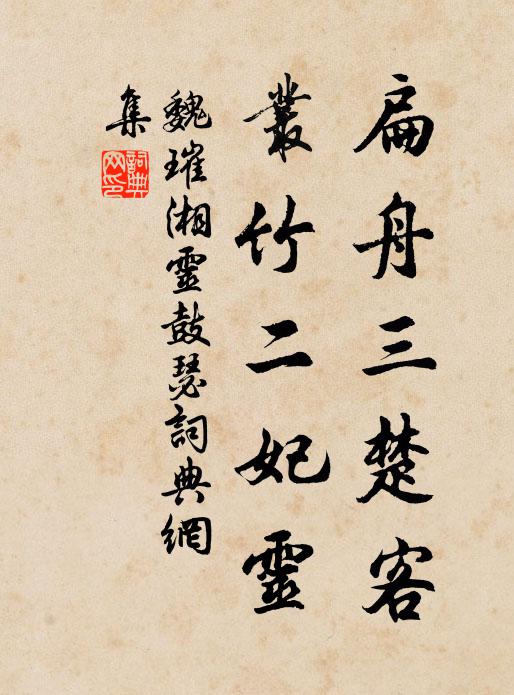 扁舟三楚客
叢竹二妃靈
魏璀湘靈鼓瑟詞典網
集
詞典網印